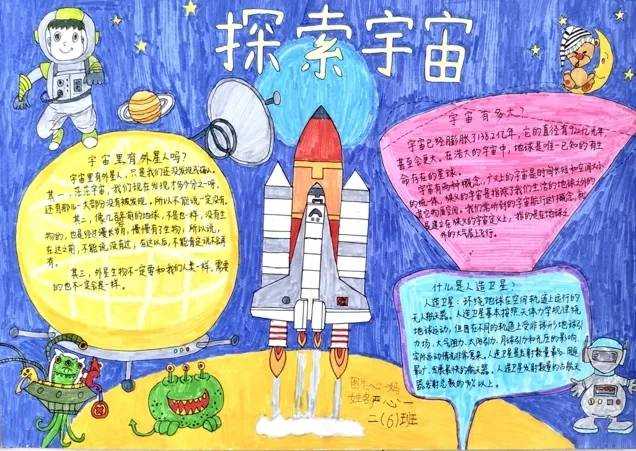 探索宇宙
宇宙里有外星人吗？
宇宙里有外星人，只是我们还没发现有确认。
其一，茫茫宇宙，我们现在发现了多少分之一呀，
还有那么一大部份没有被发现，所以不能说一定没有。
其二，像几百年前的地球，不是也一样，没有生
物的，也是经过漫长岁月，慢慢有了生物，所以说，
在这之前，不能说没有过，在这以后，不能肯定说不会再
有。
其三，外星生物不一定要和我们人类一样，需要
的也不一定会是一样。
宇宙有多大？
宇宙已经膨胀了138.2亿年，它的直径有920亿光年
甚至会更大。在浩大的宇宙中，地球是唯一已知的有生
命存在的星球。
宇宙有两种概念，个义上的宇宙是时间长短和空间大小
的统一体，狭义的宇宙是指除了我们生活的地球之外的
其它物质空间。我们常听到的宇宙航行这种概念，就
是建立在狭义的宇宙定义上，指的是在地球之
外的大气层上飞行。
什么是人造卫星？
人造卫星：环绕地球在空间轨道上运行的
无人航天器。人造卫星基本按照天体力学规律绕
地球运动，但因在不同的轨道上受非球形地球引
力场、大气阻力、太阳引力、月球引力和光压的影响，
实际运动情况非常复杂。人造卫星是发射数量最多、用途
最广、发展最快的航天器。人造卫星发射数量约占航天
器发射总数的90%以上。
姓名 严心一
二(6)班